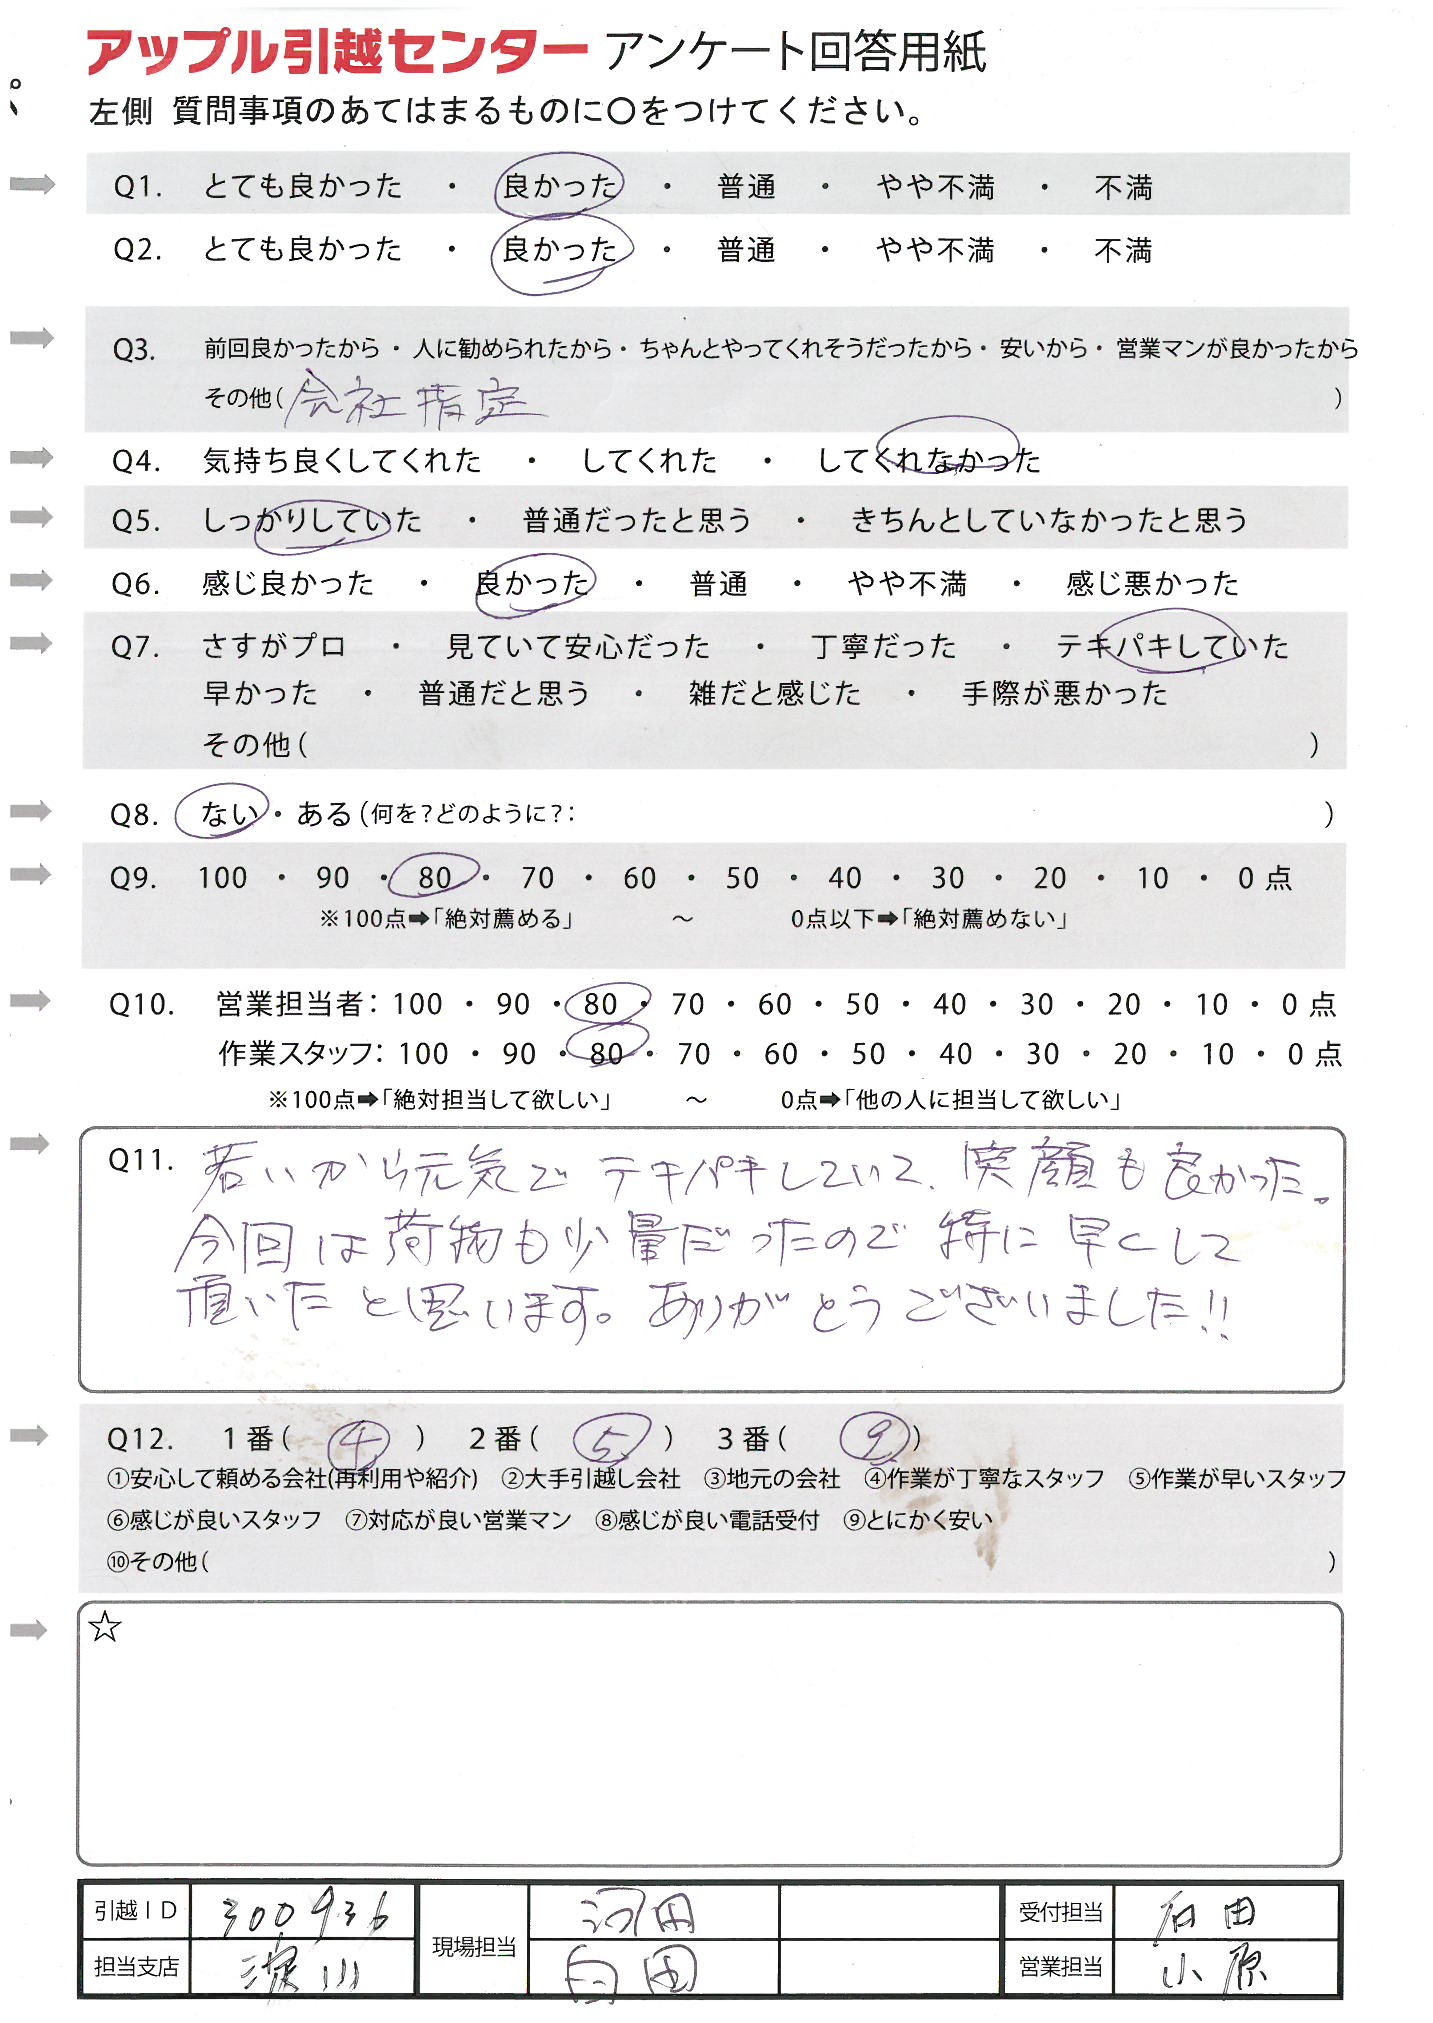 アップル引越センター アンケート回答用紙
左側 質問事項のあてはまるものに〇をつけてください。
Q1. とても良かった ・ 良かった ・ 普通 ・ やや不満 ・ 不満
Q2. とても良かった ・ 良かった ・ 普通 ・ やや不満 ・ 不満
Q3. 前回良かったから ・ 人に勧められたから ・ ちゃんとやってくれそうだったから ・ 安いから ・ 営業マンが良かったから
その他( 会社指定 )
Q4. 気持ち良くしてくれた ・ してくれた ・ してくれなかった
Q5. しっかりしていた ・ 普通だったと思う ・ きちんとしていなかったと思う
Q6. 感じ良かった ・ 良かった ・ 普通 ・ やや不満 ・ 感じ悪かった
Q7. さすがプロ ・ 見ていて安心だった ・ 丁寧だった ・ テキパキしていた
早かった ・ 普通だと思う ・ 雑だと感じた ・ 手際が悪かった
その他( )
Q8. ない ・ ある (何を?どのように?: )
Q9. 100 ・ 90 ・ 80 ・ 70 ・ 60 ・ 50 ・ 40 ・ 30 ・ 20 ・ 10 ・ 0 点
※100点➡「絶対薦める」 ～ 0点以下➡「絶対薦めない」
Q10. 営業担当者: 100 ・ 90 ・ 80 ・ 70 ・ 60 ・ 50 ・ 40 ・ 30 ・ 20 ・ 10 ・ 0 点
作業スタッフ: 100 ・ 90 ・ 80 ・ 70 ・ 60 ・ 50 ・ 40 ・ 30 ・ 20 ・ 10 ・ 0 点
※100点➡「絶対担当して欲しい」 ～ 0点➡「他の人に担当して欲しい」
Q11. 若いから元気でテキパキしていて、笑顔も良かった。
今回は荷物も少量だったので特に早くして
頂いたと思います。ありがとうございました!!
Q12. 1番( ④ ) 2番( ⑤ ) 3番( ⑨ )
①安心して頼める会社(再利用や紹介) ②大手引越し会社 ③地元の会社 ④作業が丁寧なスタッフ ⑤作業が早いスタッフ
⑥感じが良いスタッフ ⑦対応が良い営業マン ⑧感じが良い電話受付 ⑨とにかく安い
⑩その他( )
☆
引越ID 300936 現場担当 河田 受付担当 石田
担当支店 淀川 白田 営業担当 小原